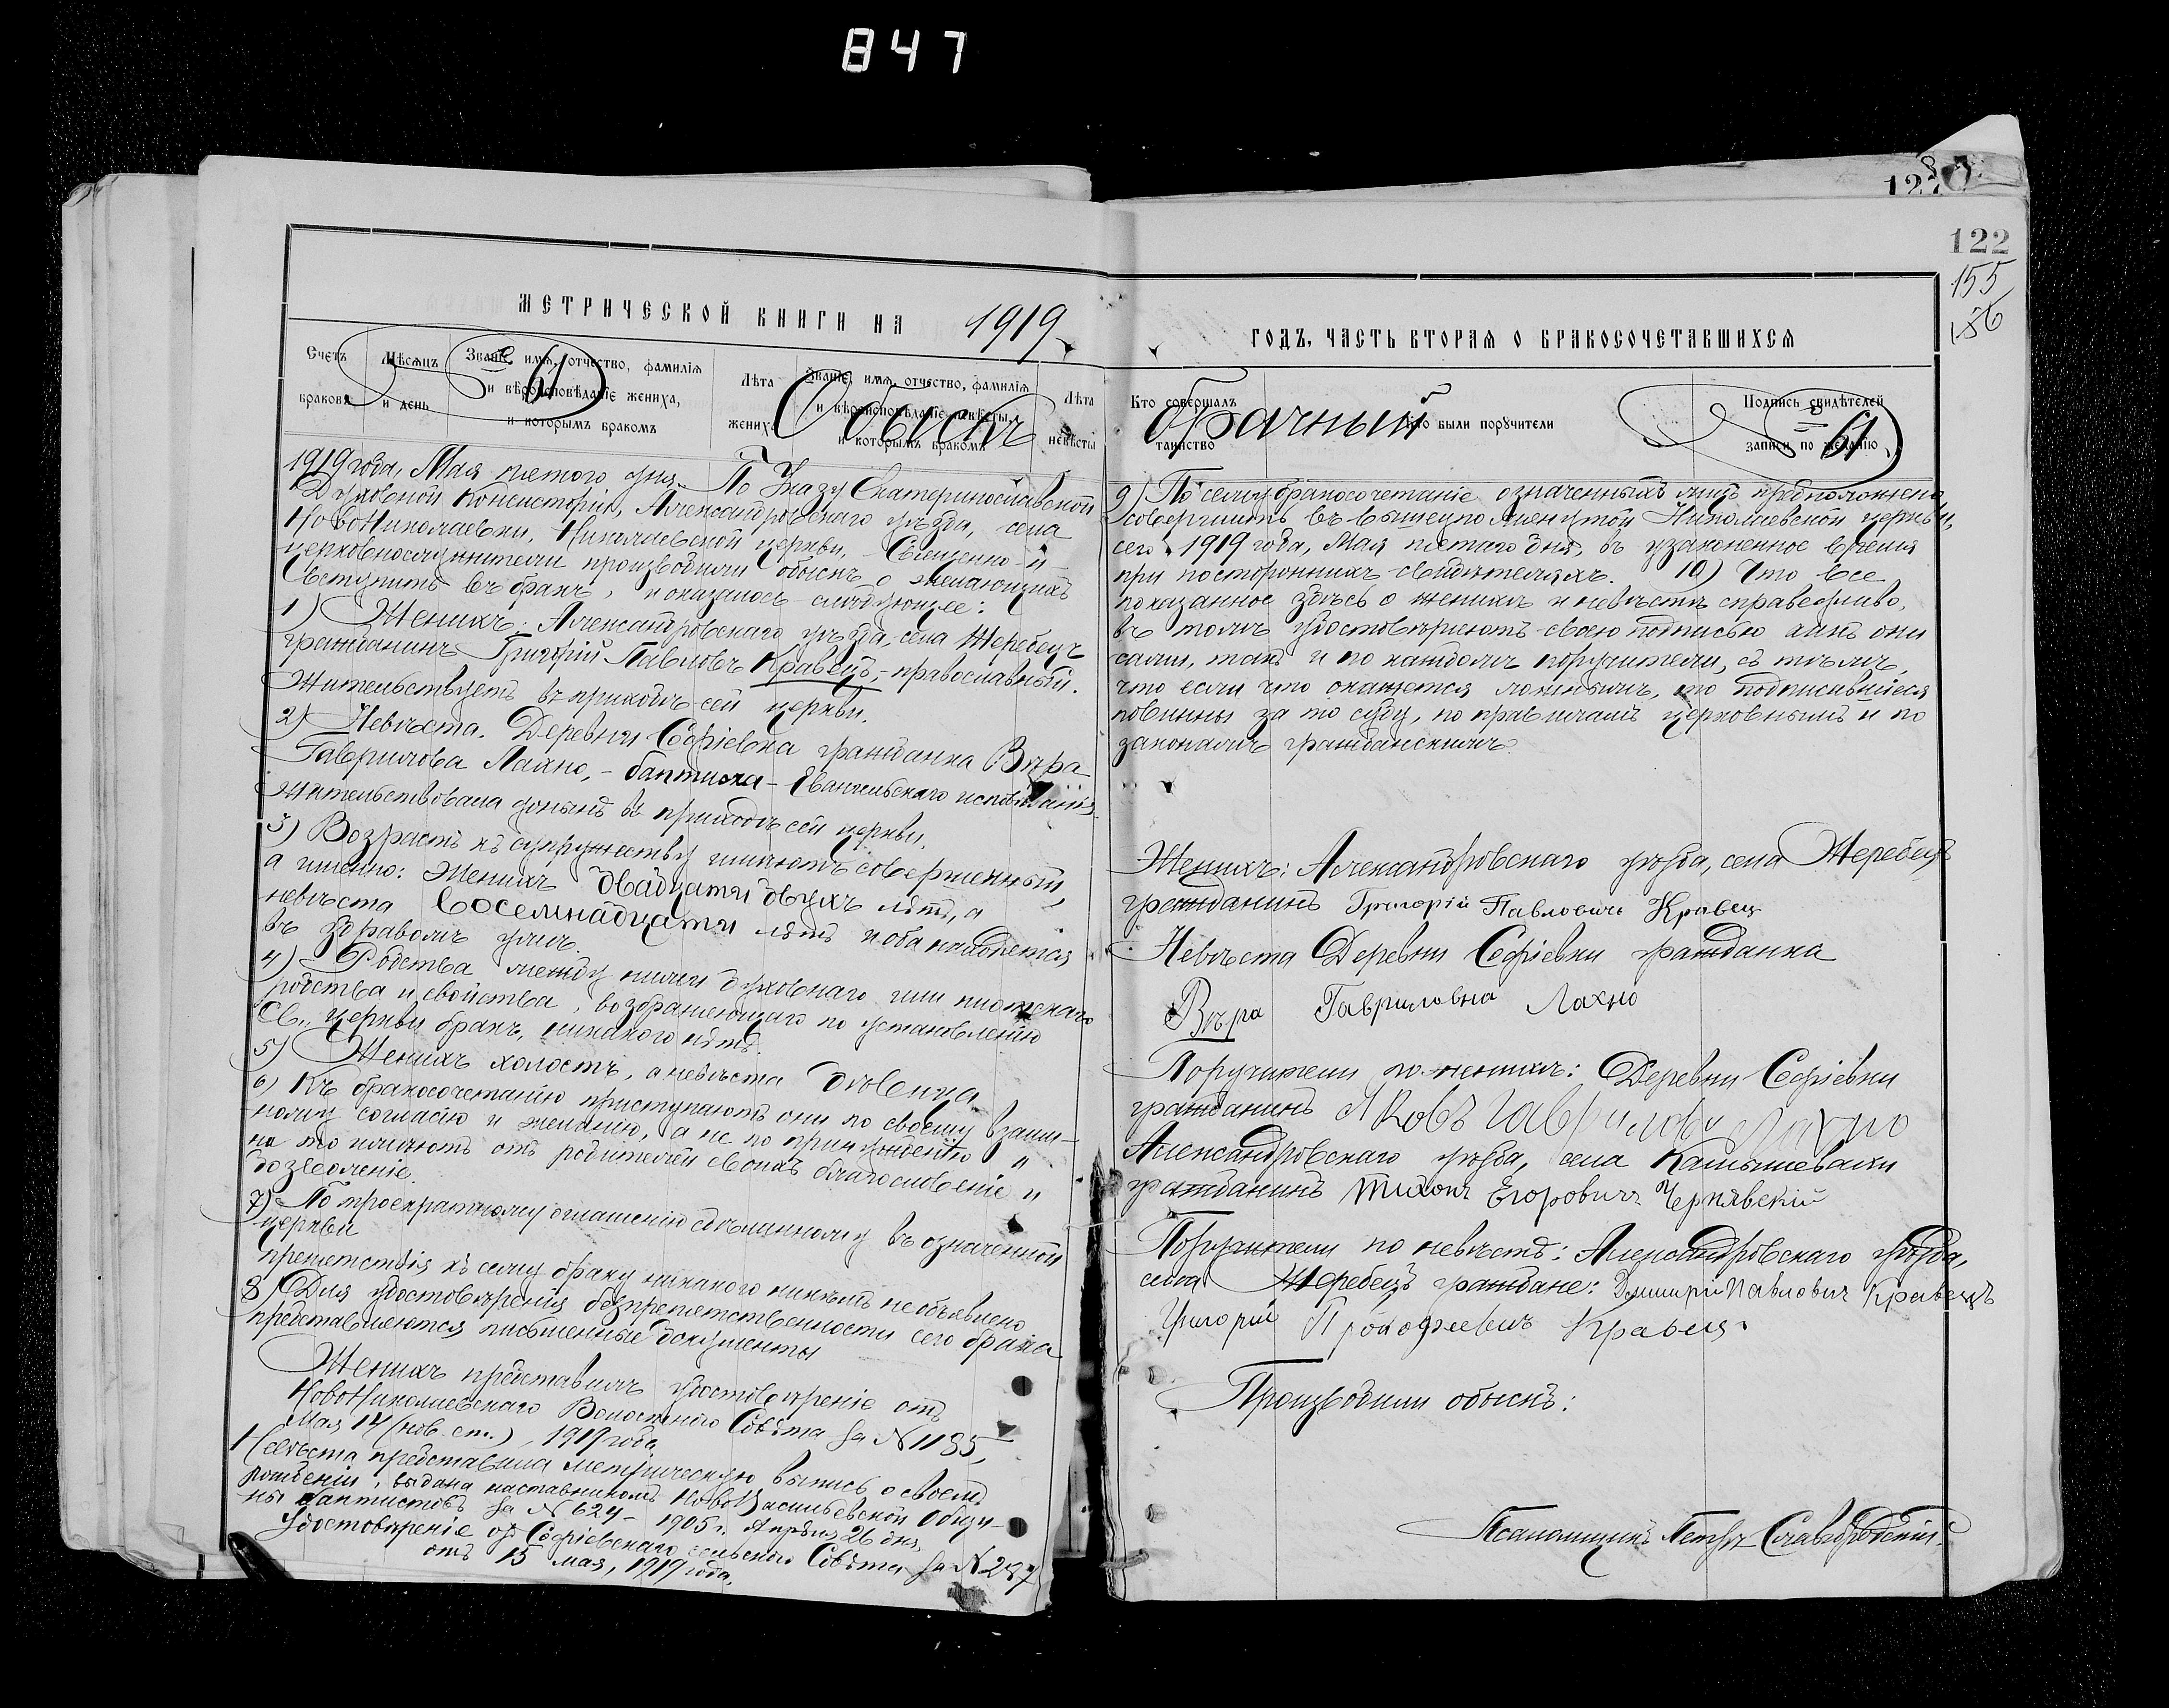 847
127
122
155
156
МЕТРИЧЕСКОЙ КНИГИ НА 1919
Счетъ браковъ
Мѣсяцъ и день
Званіе, имя, отчество, фамилія и вѣроисповѣданіе жениха, и которымъ бракомъ
Лѣта жениха
Званіе, имя, отчество, фамилія и вѣроисповѣданіе невѣсты, и которымъ бракомъ
Лѣта невѣсты
Обыскъ
1919 года, Мая пятого дня. По Указу Екатеринославской
Духовной Консисторіи, Александровскаго уѣзда, села
НовоНиколаевки, Николаевской церкви, Священно-и-
церковнослужители производили обыскъ о желающихъ
вступить въ бракъ, и оказалось слѣдующее:
1) Женихъ: Александровскаго уѣзда, села Жеребецъ
гражданинъ Григорій Павловъ Кравецъ,- православный.
Жительствуетъ въ приходѣ сей церкви.
2) Невѣста. Деревни Софіевка гражданка Вѣра
Гаврилова Лахно,- баптистка - Евангельскаго исповѣданія.
Жительствовала донынѣ въ приходѣ сей церкви.
3) Возрастъ къ супружеству имѣютъ совершенный,
а именно: женихъ двадцати двухъ лѣтъ, а
невѣста восемнадцати лѣтъ и оба находятся
въ здравомъ умѣ.
4) Родства между ними духовнаго или плотскаго
родства и свойства, возбраняющаго по установленію
Св. церкви бракъ, никакого нѣтъ.
5) Женихъ холостъ, а невѣста дѣвица
6) Къ бракосочетанію приступаютъ они по своему взаим-
ному согласію и желанію, а не по принужденію и
на то имѣютъ отъ родителей своихъ благословеніе и
дозволеніе.
7) По троекратному оглашенію сдѣланному въ означенной
церкви
препятствія къ сему браку никакого никѣмъ не объявлено
8) Для удостовѣренія безпрепятственности сего брака
представляются письменные документы
Женихъ представилъ удостовѣреніе отъ
НовоНиколаевскаго Волостного Совѣта за N 1185,
Мая 14 (нов. ст.), 1919 года.
Невѣста представила метрическую выпись о своемъ
рожденіи, выдана наставникомъ НовоВасильевской Общи-
ны баптистовъ за N 624 - 1905 г. Апрѣля 26 дня,
Удостовѣреніе отъ Софіевскаго сельскаго Совѣта за N 287
отъ 15 мая, 1919 года.
ГОДЪ, ЧАСТЬ ВТОРАЯ О БРАКОСОЧЕТАВШИХСЯ
Кто совершалъ таинство
Кто были поручители
Подпись свидѣтелей записи по желанію
брачный
9) По сему бракосочетаніе означенныхъ лицъ предположено
совершить въ вышеупомянутой Николаевской церкви,
сего 1919 года, Мая пятаго дня, въ узаконенное время
при постороннихъ свидѣтеляхъ. 10) Что все
показанное здѣсь о женихѣ и невѣстѣ справедливо,
въ томъ удостовѣряютъ своею подписью какъ они
сами, такъ и по каждомъ поручители, съ тѣмъ,
что если что окажется ложнымъ, то подписавшіеся
повинны за то суду, по правиламъ церковнымъ и по
законамъ гражданскимъ.
Женихъ: Александровскаго уѣзда, села Жеребецъ
гражданинъ Григорій Павловичъ Кравец
Невѣста Деревни Софіевки гражданка
Вѣра Гавриловна Лахно
Поручители по женихѣ: Деревни Софіевки
гражданинъ Яковъ Гавриловъ Лахно
Александровскаго уѣзда, села Камышевахи
гражданинъ Тихон Егоровичъ Чернявскій
Поручители по невѣстѣ: Александровскаго уѣзда,
села Жеребецъ граждане: Дмитрій Павлович Кравецъ
Григорій Прокофеевич Кравец.
Производили обыскъ:
Псаломщикъ Петръ